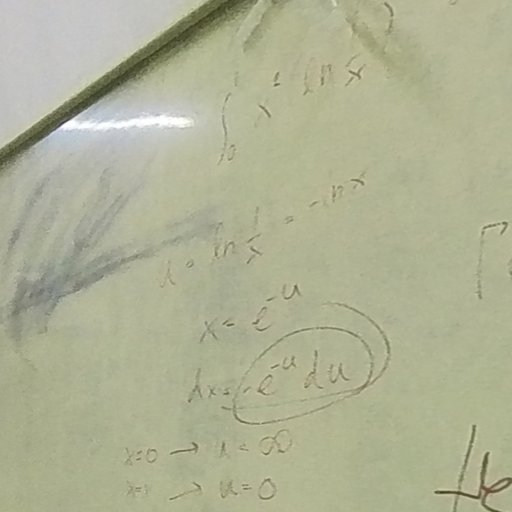 ∫₀¹ x² ln 1/x
u = ln 1/x = -ln x
x = e^-u
dx = -e^-u du
x=0 → u=∞
x=1 → u=0
He